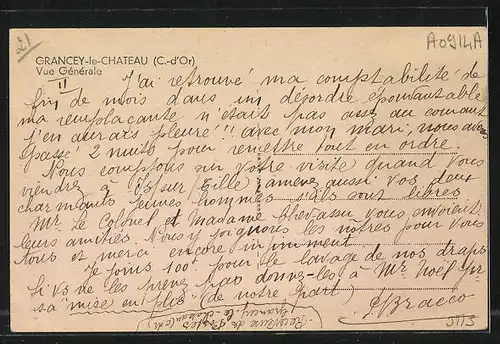 21
A0914A
GRANCEY-le-CHATEAU (C.-d'Or)
Vue Générale
II
J'ai retrouvé ma comptabilité de
fin de mois dans un désordre épouvantable
ma remplaçante n'était pas assez au courant
j'en aurais pleuré!! avec mon mari, nous avons
passé 2 nuits pour remettre tout en ordre.
Nous comptons sur votre visite, quand vous
viendrez à Is sur Tille, amenez aussi vos deux
charmants jeunes hommes s'ils sont libres
Mr. le Colonel et Madame Chevassu vous envoient
leurs amitiés. Nous y joignons les nôtres pour vous
tous et merci encore infiniment.
Je joins 100f pour le lavage de nos draps
Si vs ne les prenez pas donnez-les à Mr Noël pr
sa "mise en plis" (de notre part)
Bracco
(Receveuse des Postes
Grancey le Château (C.d.)